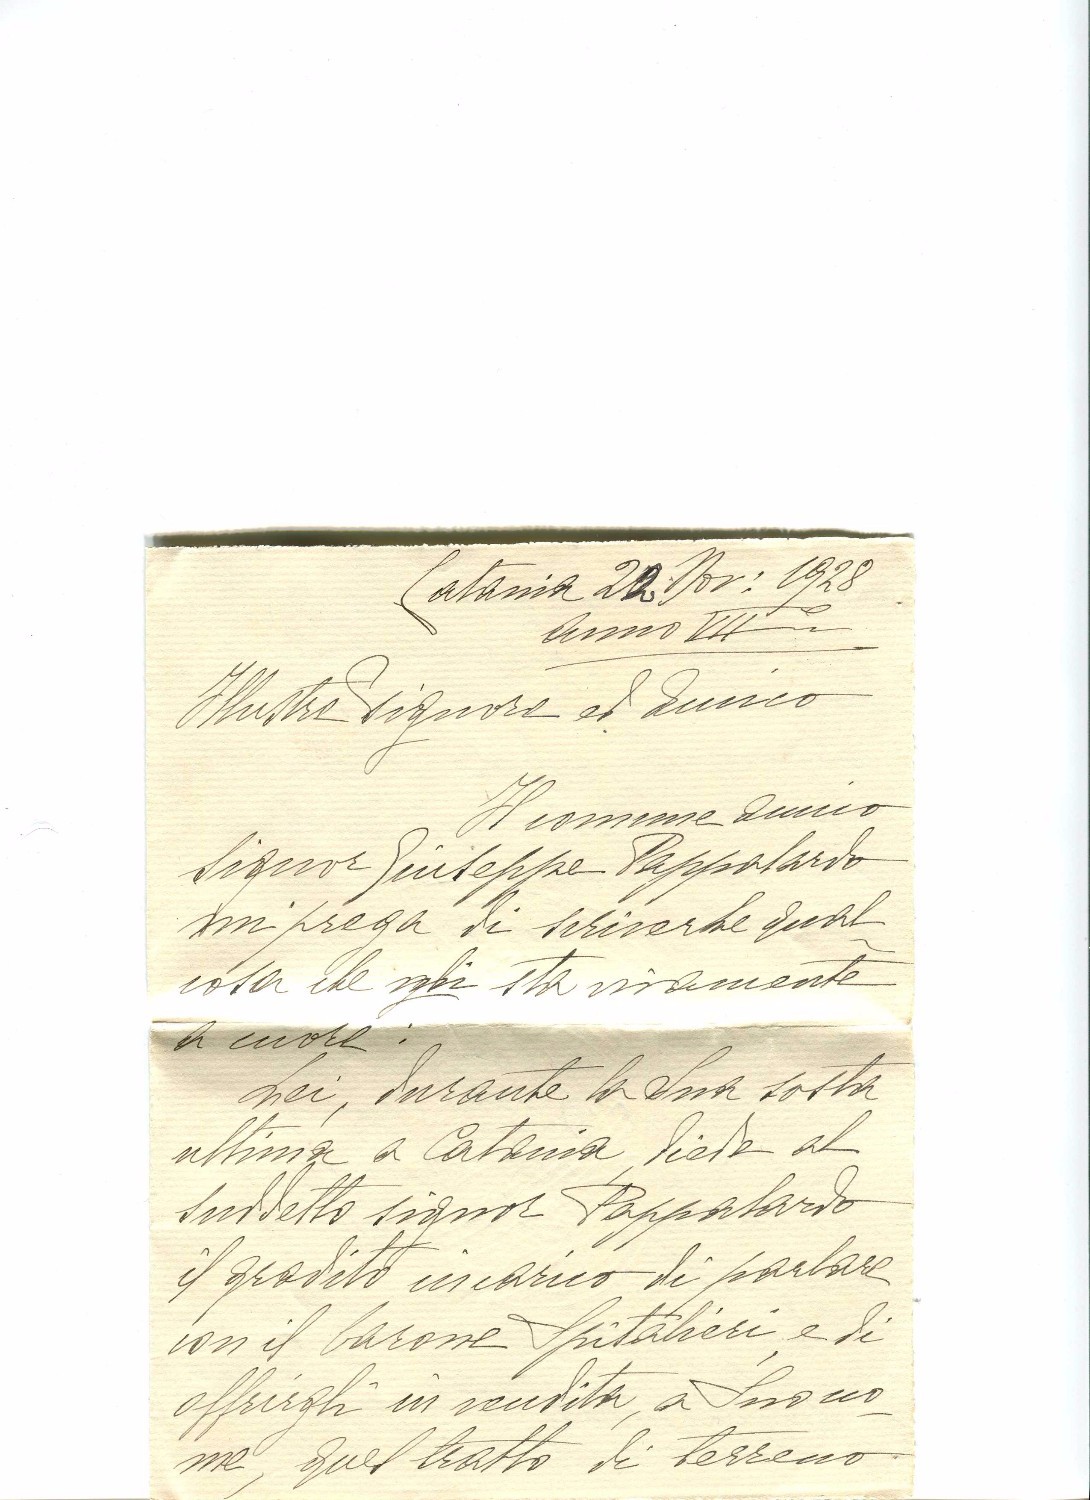 Catania 22 Nov: 1928
Anno VII°
Illustre Signore ed Amico
Il comune amico
signor Giuseppe Pappalardo
mi prega di scriverle qual-
cosa che gli sta vivamente
a cuore:
Lei, durante la Sua sosta
ultima a Catania, diede al
suddetto signor Pappalardo
il gradito incarico di parlare
con il barone Spitalieri, e di
offrirgli in vendita, a Suo no-
me, quel tratto di terreno